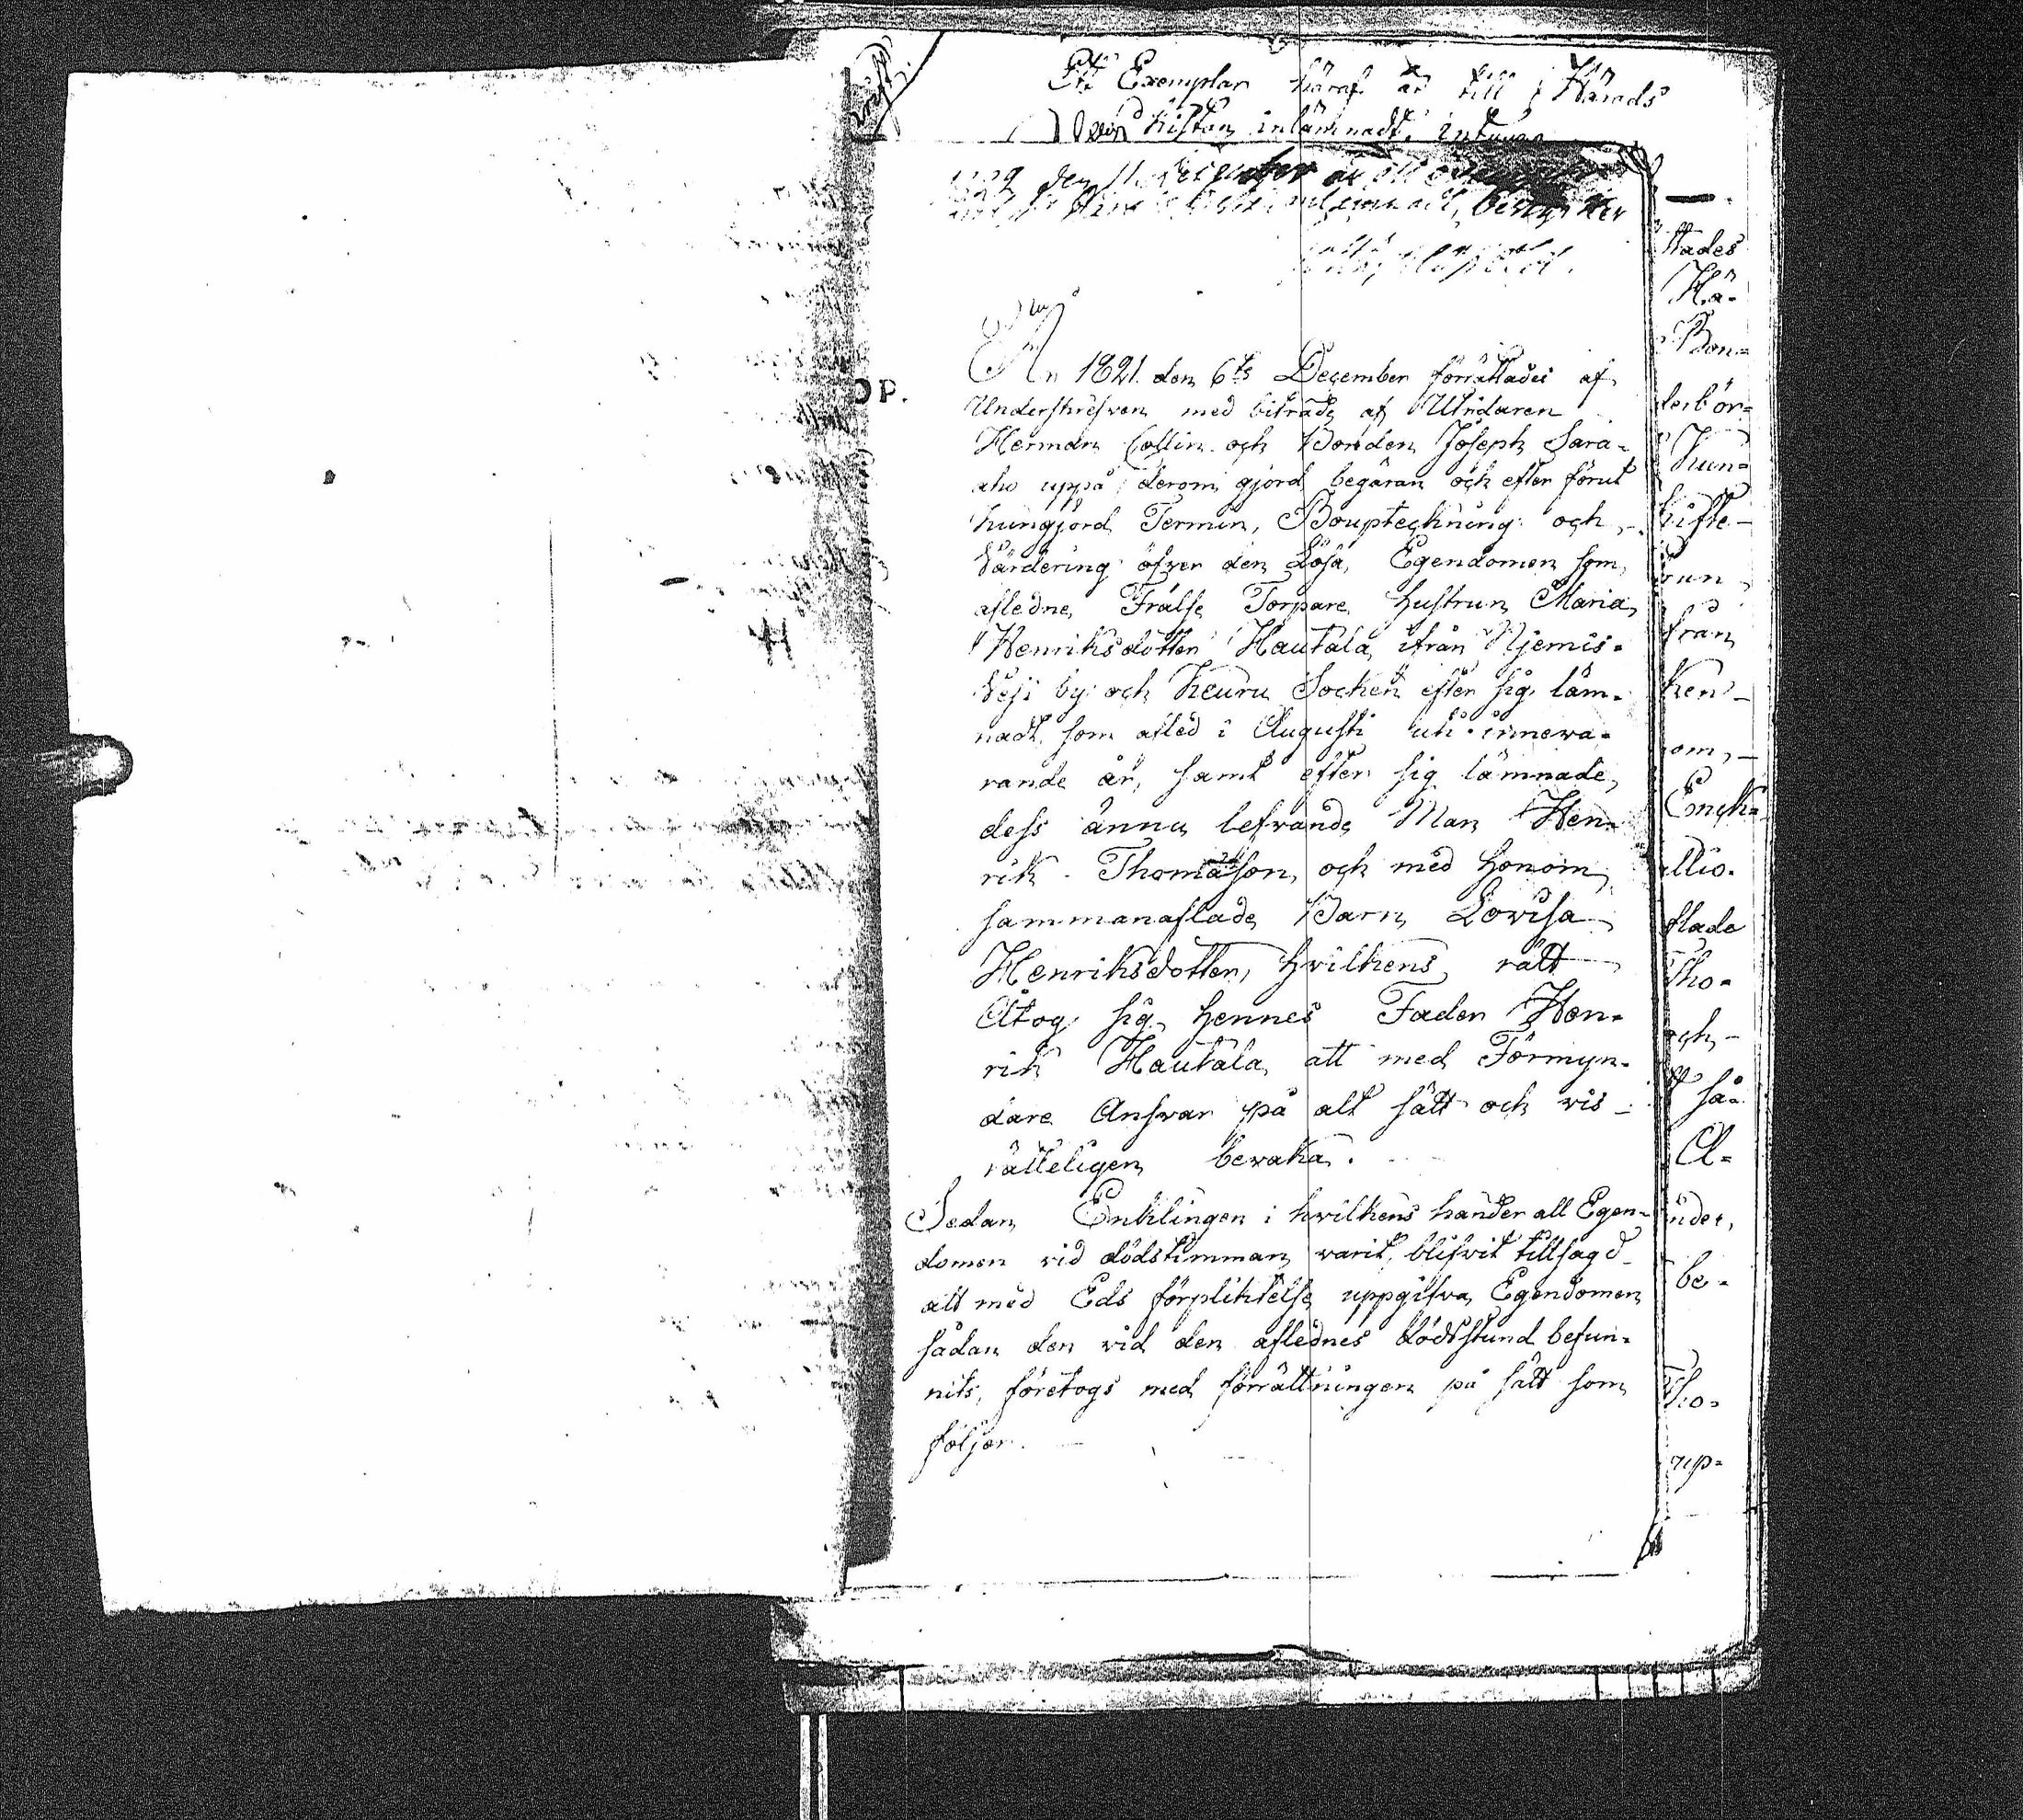 Ett Exemplar häraf är till Härads
kistan inlämnadt, intygar
den 11 December är ett
inlemnadt, betygar
År 1821. den 6te December förrättades af
Underskrefven med biträde af Utridaren
Herman Collin och Bonden Joseph Sara-
aho uppå derom gjord begäran och efter förut
kungjord Termin, Boupteckning och
Värdering öfver den Lösa, Egendomen som
afledne Frälse Torpare hustrun Maria
Henriksdotter Hautala, ifrån Njemis-
vesi by och Keuru Socken efter sig läm-
nadt, som afled i Augusti uti inneva-
rande år, samt efter sig lämnade,
dess ännu lefvande Man Hen-
rik Thomasson, och med honom
sammanaflade Barn Lovisa
Henriksdotter, hvilkens rätt
Åtog sig hennes Fader Hen-
rik Hautala, att med Förmyn-
dare Ansvar på alt sätt och vis
rätteligen bevaka.
Sedan Enklingen i hvilkens händer all Egen-
domen vid dödstimman varit, blifvit tillsagd
att med Eds förpliktelse uppgifva Egendomen
sådan den vid den aflednes dödsstund befun-
nits, företogs med förrättningen på sätt som
följer.
OP.
ttades
Hä-
Bon-
derbör-
Kun-
skifte-
från
Ken-
om,
Enck-
flade
Tho-
och
så-
A-
be-
Tho-
up-